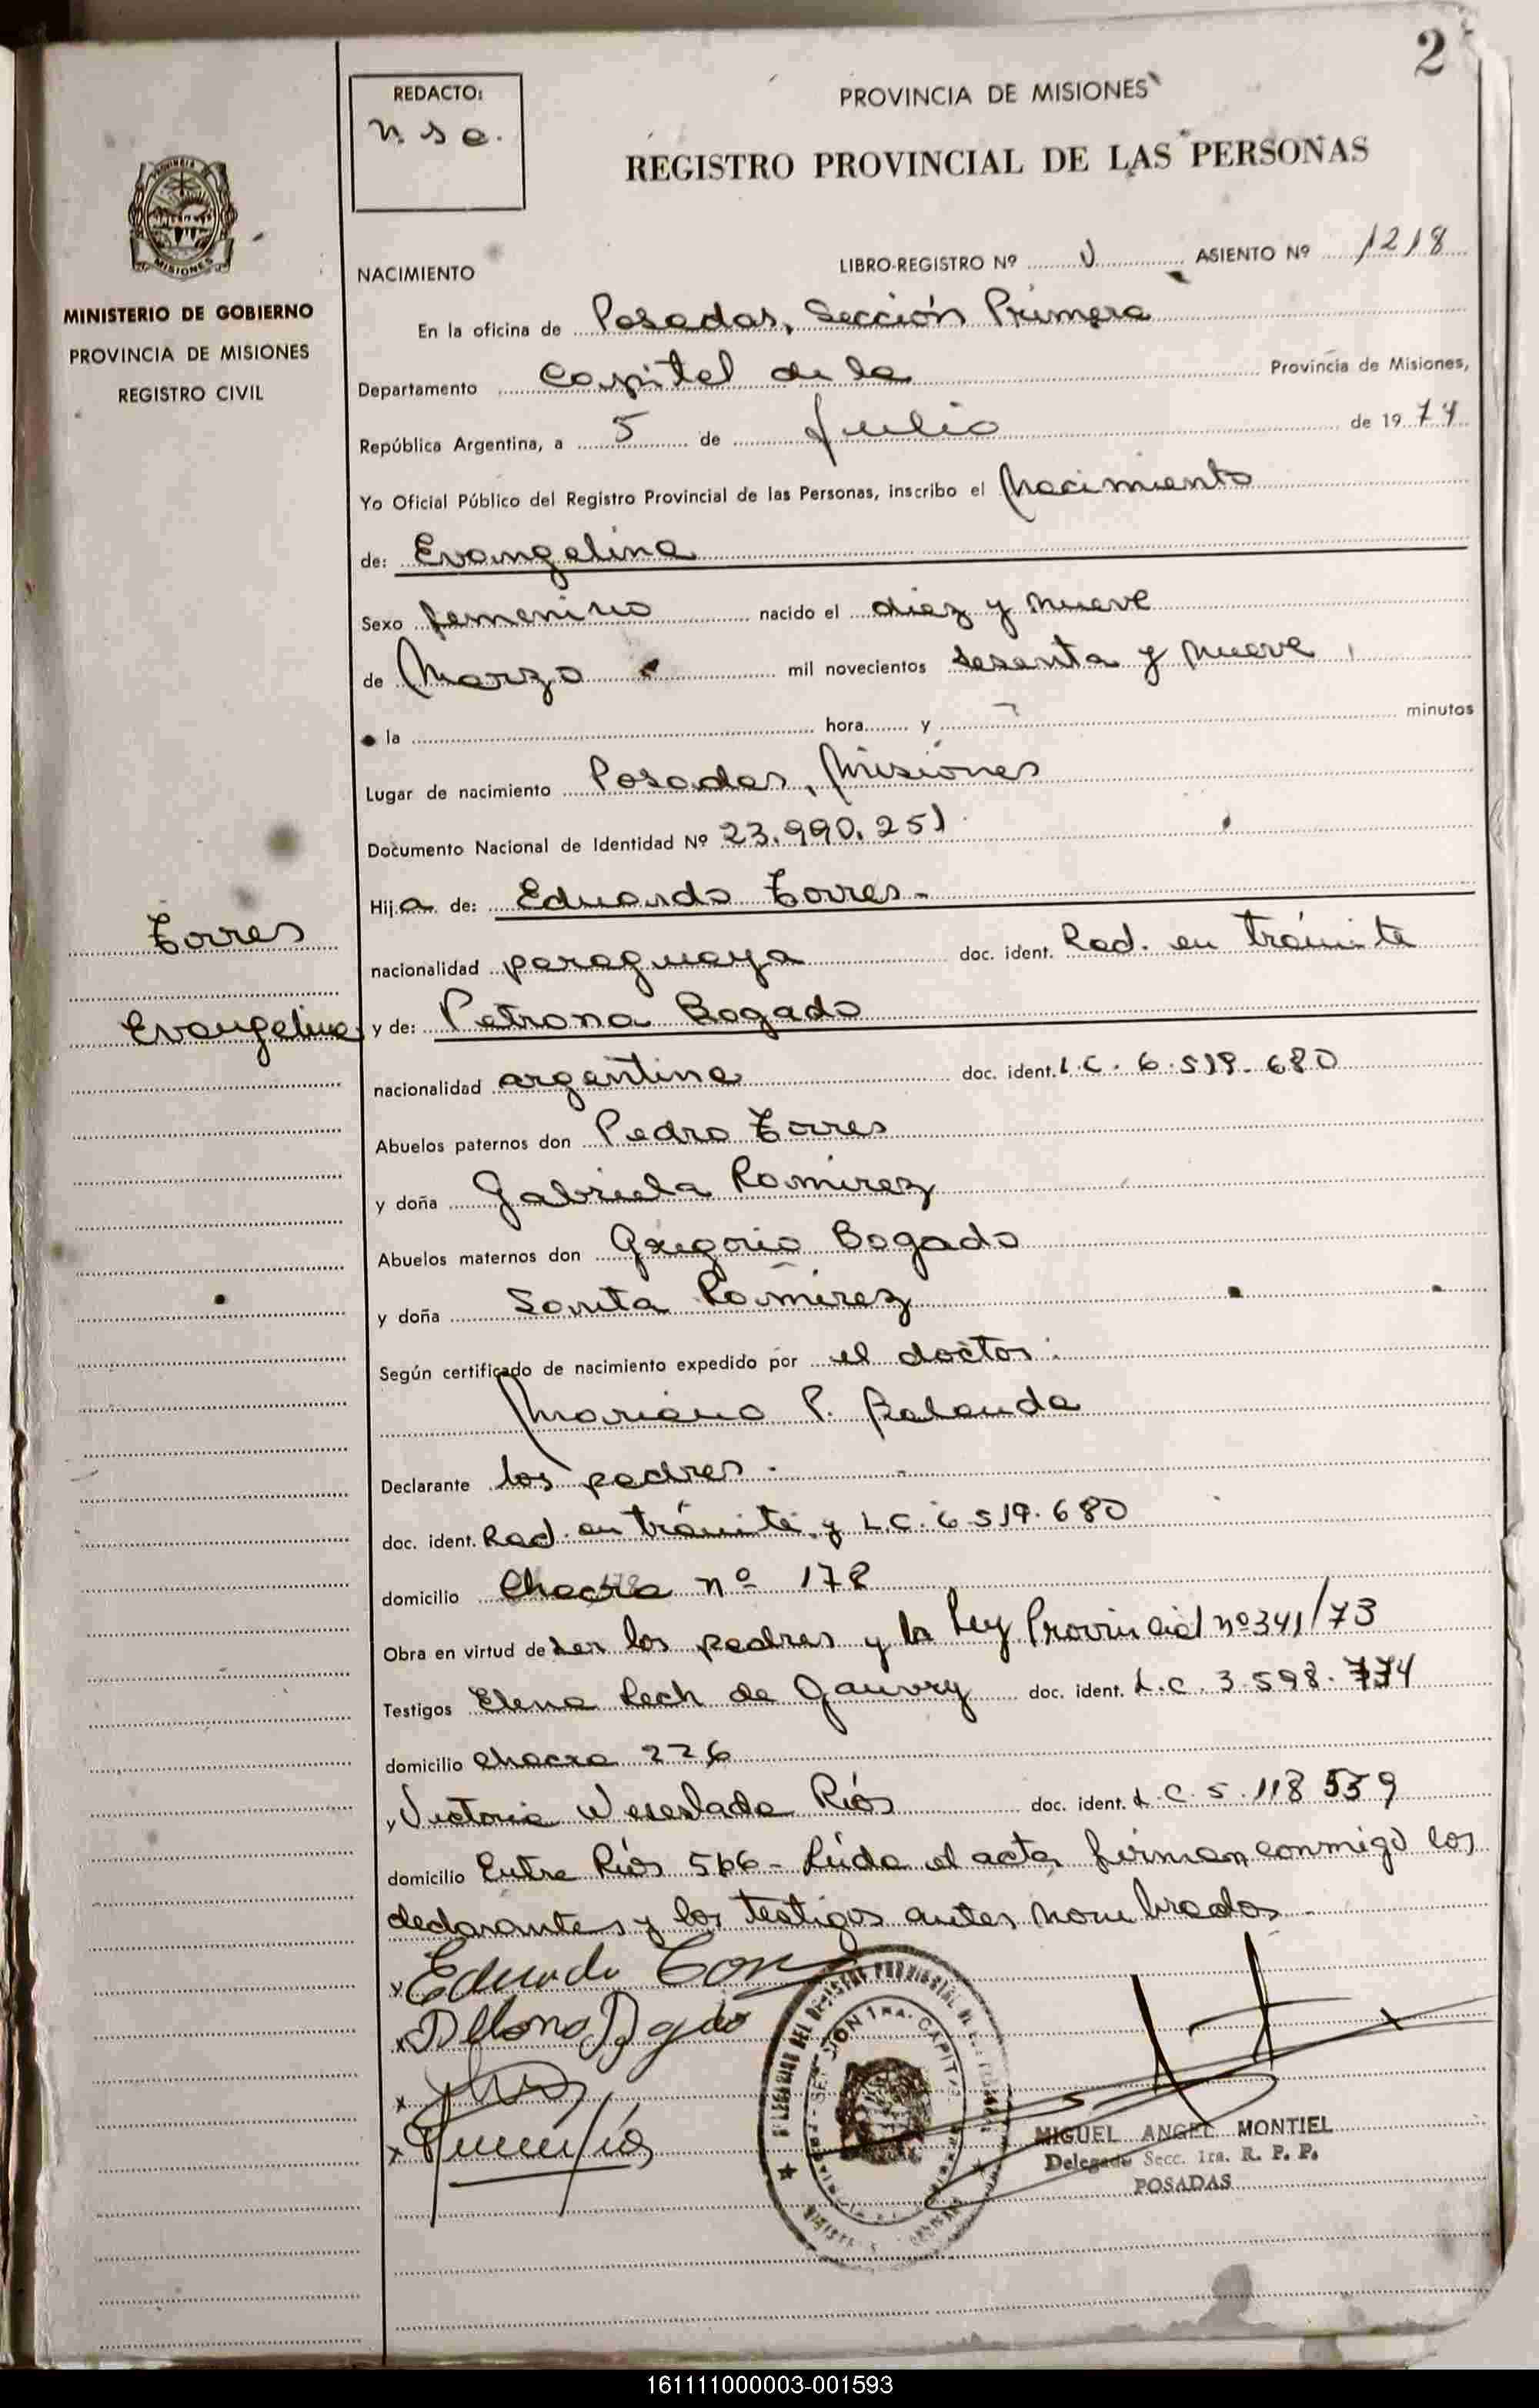 2
REDACTO:
n. s e.
PROVINCIA DE MISIONES
REGISTRO PROVINCIAL DE LAS PERSONAS
MISIONES
MINISTERIO DE GOBIERNO
PROVINCIA DE MISIONES
REGISTRO CIVIL
NACIMIENTO
LIBRO-REGISTRO Nº V ASIENTO Nº 1218
En la oficina de Posadas, Sección Primera
Departamento Capital de la Provincia de Misiones,
República Argentina, a 5 de Julio de 1974
Yo Oficial Público del Registro Provincial de las Personas, inscribo el Nacimiento
de: Evangelina
Sexo femenino nacido el diez y nueve
de Marzo mil novecientos sesenta y nueve
la hora y minutos
Lugar de nacimiento Posadas, Misiones
Documento Nacional de Identidad Nº 23.990.251
Hija de: Eduardo Torres.-
Torres
nacionalidad paraguaya doc. ident. Rad. en trámite
Evangelina
y de: Petrona Bogado
nacionalidad argentina doc. ident. L.C. 6.519.680
Abuelos paternos don Pedro Torres
y doña Gabriela Ramirez
Abuelos maternos don Gregorio Bogado
y doña Santa Ramirez
Según certificado de nacimiento expedido por el doctor
Mariano P. Balanda
Declarante los padres.
doc. ident. Rad. en trámite y L.C. 6.519.680
domicilio Chacra nº 178
Obra en virtud de ser los padres y la Ley Provincial nº 341/73
Testigos Elena Lech de Gauvry doc. ident. L.C. 3.598.774
domicilio chacra 226
y Victoria Weseslada Ríos doc. ident. L.C. 5.118 559
domicilio Entre Ríos 566 - Leída el acta, firman conmigo los
declarantes y los testigos antes nombrados
x Eduardo Torres
x Petrona Bogado
x
x
SECCION 1RA. CAPITAL
MIGUEL ANGEL MONTIEL
Delegado Secc. 1ra. R. P. P.
POSADAS
161111000003-001593